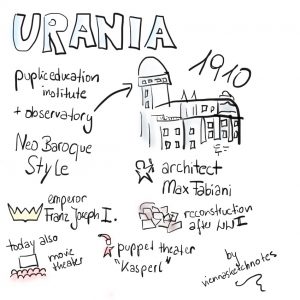 URANIA
puplic education
institute
+ observatory
1910
Neo Baroque
Style
architect
Max Fabiani
emperor
Franz Joseph I.
reconstruction
after WWII
today also
movie
theater
puppet theater
"Kasperl"
by
viennasketchnotes